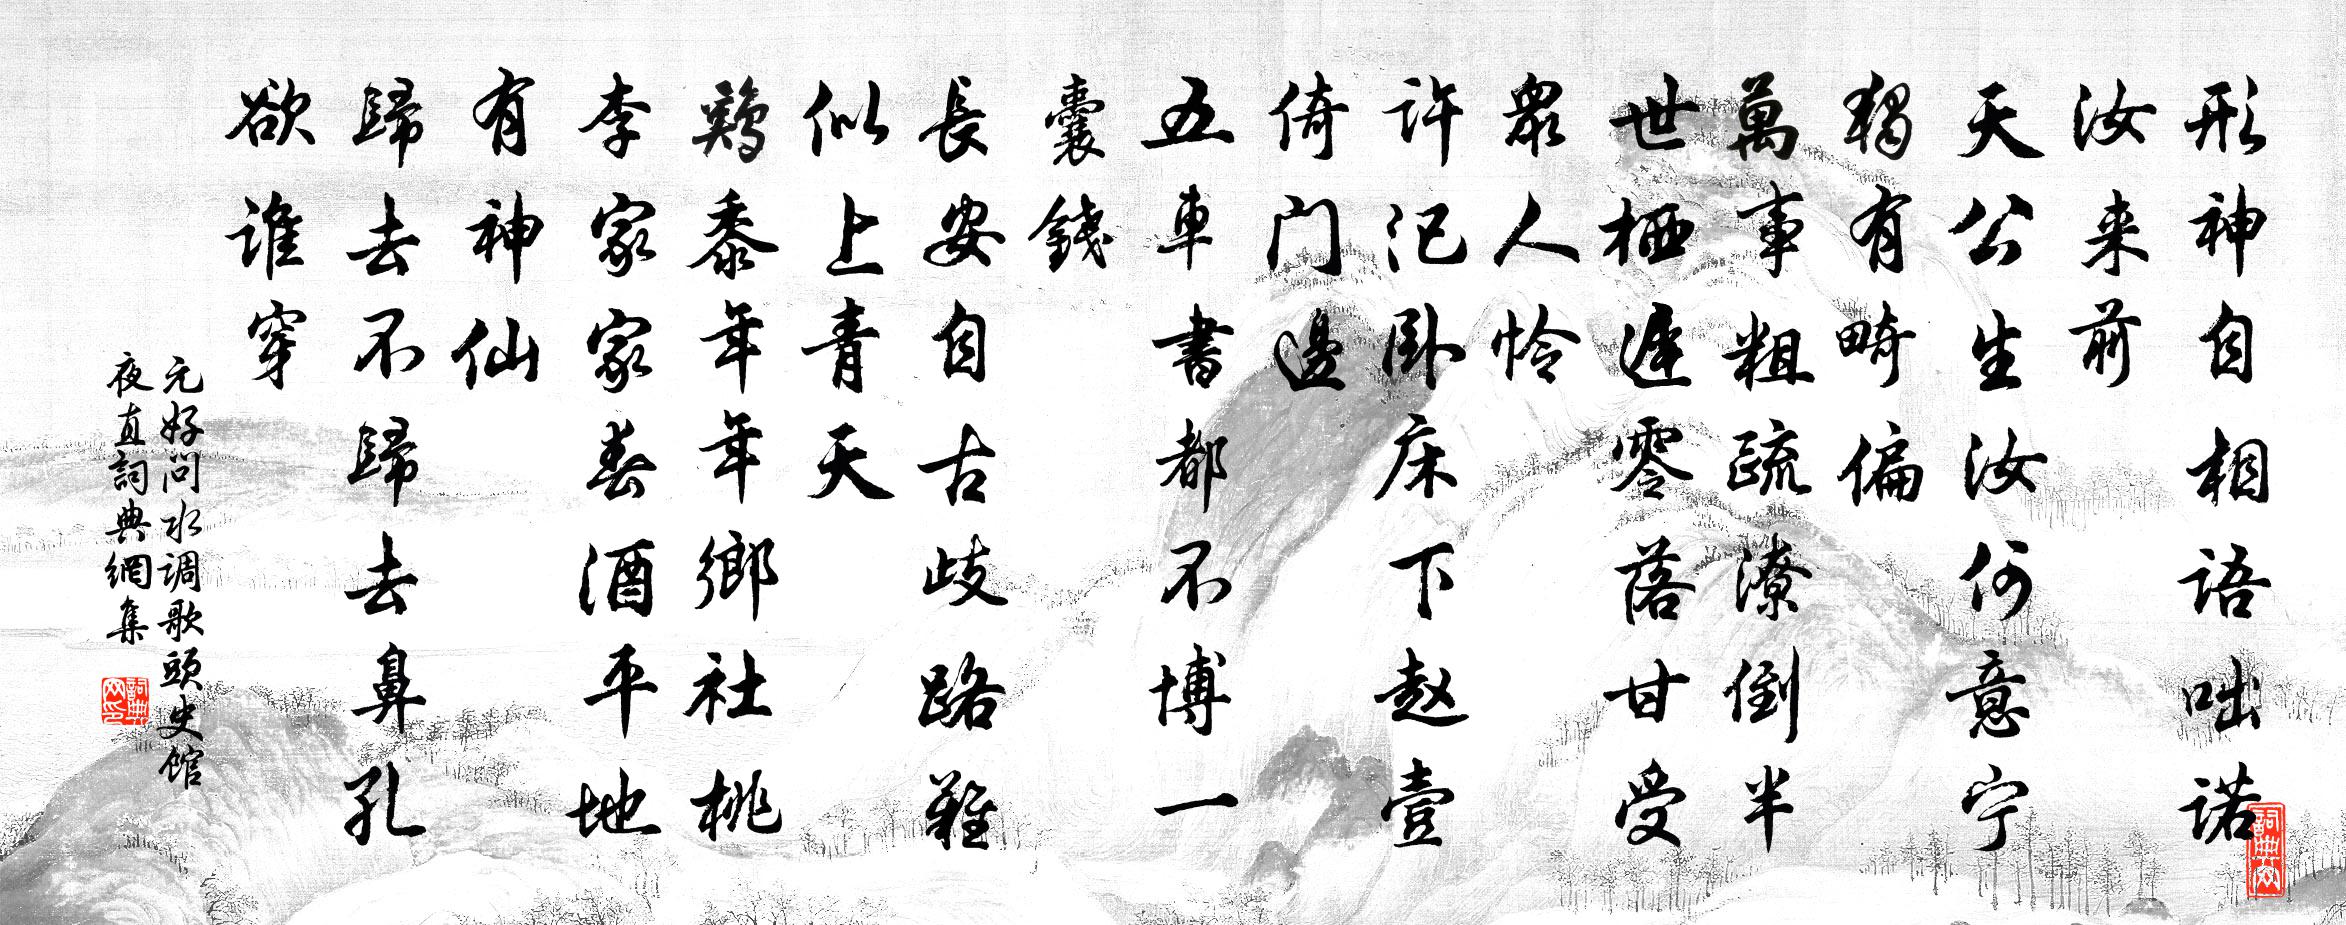 形神自相語咄诺
汝来前
天公生汝何意宁
独有畸偏
萬事粗疏潦倒半
世栖遲零落甘受
衆人怜
许汜卧床下赵壹
倚门邊
五車書都不博一
囊錢
長安自古歧路難
似上青天
鷄黍年年鄉社桃
李家家春酒平地
有神仙
歸去不歸去鼻孔
欲谁穿
元好问水调歌頭史馆
夜直詞典網集
詞典网
詞典网印